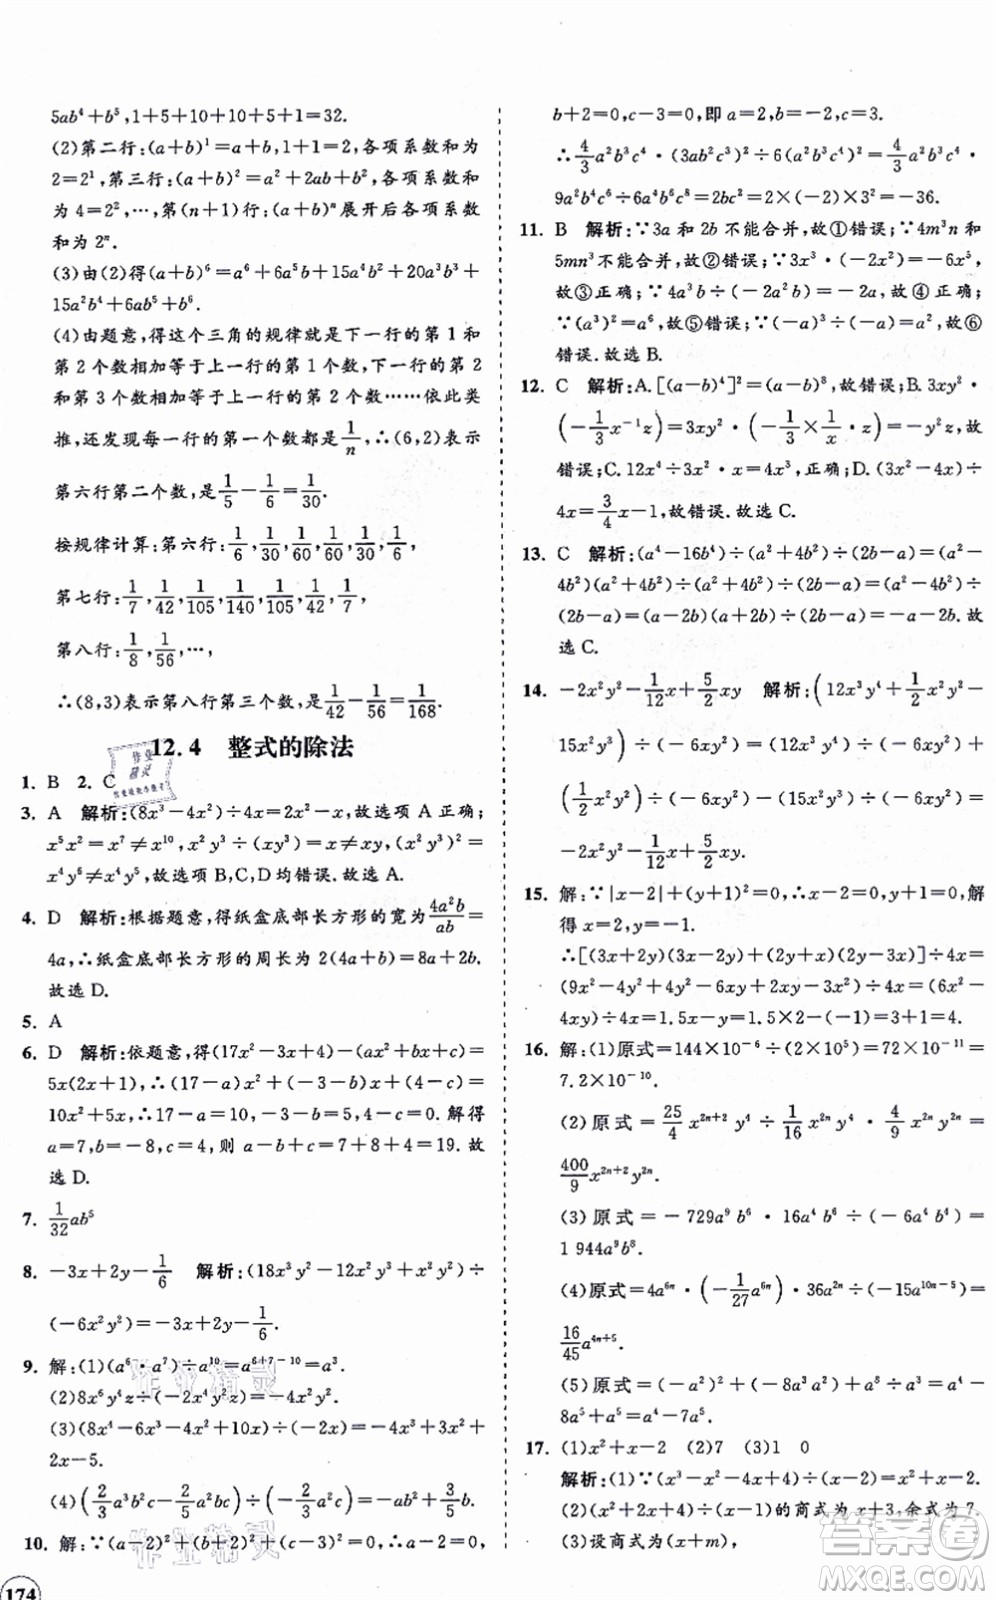 5ab⁴+b⁵,1+5+10+10+5+1=32.
(2)第二行:(a+b)¹=a+b,1+1=2,各项系数和
=2¹,第三行:(a+b)²=a²+2ab+b²,各项系数和
为 4=2²,…,第(n+1)行:(a+b)ⁿ展开后各项系数
和为 2ⁿ.
(3)由(2)得(a+b)⁶=a⁶+6a⁵b+15a⁴b²+20a³b³+
15a²b⁴+6ab⁵+b⁶.
(4)由题意,得这个三角的规律就是下一行的第 1 和
第 2 个数相加等于上一行的第 1 个数,下一行的第 2
和第 3 个数相加等于上一行的第 2 个数……依此类
推,还发现每一行的第一个数都是1/n,∴(6,2)表示
第六行第二个数,是1/5-1/6=1/30.
按规律计算:第六行:1/6,1/30,1/60,1/60,1/30,1/6,
第七行:1/7,1/42,1/105,1/140,1/105,1/42,1/7,
第八行:1/8,1/56,…,
∴(8,3)表示第八行第三个数,是1/42-1/56=1/168.
12.4 整式的除法
1. B 2. C
3. A 解析:(8x³-4x²)÷4x=2x²-x,故选项 A 正确.
x⁵x²=x⁷≠x¹⁰,x²y³÷(xy³)=x≠xy,(x²y²)²=
x⁴y⁴≠x⁴y⁶,故选项 B,C,D 均错误.故选 A.
4. D 解析:根据题意,得纸盒底部长方形的宽为4a²b/ab=
4a,∴纸盒底部长方形的周长为 2(4a+b)=8a+2b.
故选 D.
5. A
6. D 解析:依题意,得(17x²-3x+4)-(ax²+bx+c)=
5x(2x+1),∴(17-a)x²+(-3-b)x+(4-c)=
10x²+5x,∴17-a=10,-3-b=5,4-c=0.解得
a=7,b=-8,c=4,则 a-b-c=7+8-4=11.故
选 D.
7. 1/32ab⁵
8. -3x+2y-1/6 解析:(18x³y²-12x²y³+x²y²)÷
(-6x²y²)=-3x+2y-1/6.
9. 解:(1)(a⁶·a⁷)÷a¹⁰=a⁶⁺⁷⁻¹⁰=a³.
(2)8x⁶y⁴z÷(-4x²y²z)=-2x⁴y².
(3)(8x⁴-6x³-4x²+10x)÷(-2x)=-4x³+3x²+
2x-5.
(4)(2/3a³b²c-2/5a²bc)÷(-2/3a²bc)=-ab+3/5.
10. 解:∵(a-2)²+(b+2)²+(c-3)²=0,∴a-2=0,
b+2=0,c-3=0,即 a=2,b=-2,c=3.
∴4/3a²b³c⁴·(3ab²c³)²÷6(a²b³c⁴)²=4/3a²b³c⁴·
9a²b⁴c⁶÷6a⁴b⁶c⁸=2bc²=2×(-2)×3²=-36.
11. B 解析:∵3a 和 2b 不能合并,故①错误;∵4m³n 和
5mn³不能合并,故②错误;∵3x³·(-2x²)=-6x⁵,
故③正确;∵4a³b÷(-2a²b)=-2a,故④正确;
∵(a³)²=a⁶,故⑤错误;∵(-a)³÷(-a)=a²,故⑥
错误.故选 B.
12. C 解析:A.[(a-b)⁴]²=(a-b)⁸,故错误;B.3xy²·
(-1/3x⁻¹z)=3xy²·(-1/3×1/x·z)=-y²z,故
错误;C.12x⁴÷3x²·x=4x²·x=4x³;D.(3x²-4x)÷
4x=3/4x-1,故错误.故选 C.
13. C 解析:(a⁴-16b⁴)÷(a²+4b²)÷(2b-a)=(a²-
4b²)(a²+4b²)÷(a²+4b²)÷(2b-a)=(a²-4b²)÷
(2b-a)=(a-2b)(a+2b)÷(2b-a)=-a-2b.故
选 C.
14. -2x²y²-1/12x+5/2xy 解析:(12x³y⁴+1/2x²y²-
15x²y³)÷(-6xy²)=(12x³y⁴)÷(-6xy²)+
(1/2x²y²)÷(-6xy²)-(15x²y³)÷(-6xy²)=
-2x²y²-1/12x+5/2xy.
15. 解:∵|x-2|+(y+1)²=0,∴x-2=0,y+1=0,解
得 x=2,y=-1.
∴[(3x+2y)(3x-2y)+(2y+x)(2y-3x)]÷4x=
(9x²-4y²+4y²-6xy+2xy-3x²)÷4x=(6x²-
4xy)÷4x=1.5x-y=1.5×2+1=3+1=4.
16. 解:(1)原式=144×10⁻⁶÷(2×10⁵)=72×10⁻¹¹=
7.2×10⁻¹⁰.
(2)原式=25/4x²ⁿ⁺²y⁴÷1/16x²y⁴·4/9x²y²ⁿ=
400/9x²ⁿ⁺²y²ⁿ.
(3)原式=-729a⁹b⁶·16a⁴b⁶÷(-6a⁴b⁴)=
1 944a⁹b⁸.
(4)原式=4a⁶ⁿ·(-1/27a⁶ⁿ)·36a²ⁿ÷(-15a¹⁰ⁿ⁻⁵)=
16/45a⁴ⁿ⁺⁵.
(5)原式=a²·(-a²)-(-8a³a⁵)÷a³=-a⁴+
8a⁵÷a=8a⁴-a⁴=7a⁴.
17. (1)x²+x-2 (2)7 (3)1 0
解析:(1)∵(x³-x²-4x+4)÷(x-2)=x²+x-2.
(2)(x²+2x+4)÷(x-1)的商式为 x+3,余式为 7.
(3)设商式为(x+m),
174
作业精灵
答案圈
MXQE.COM